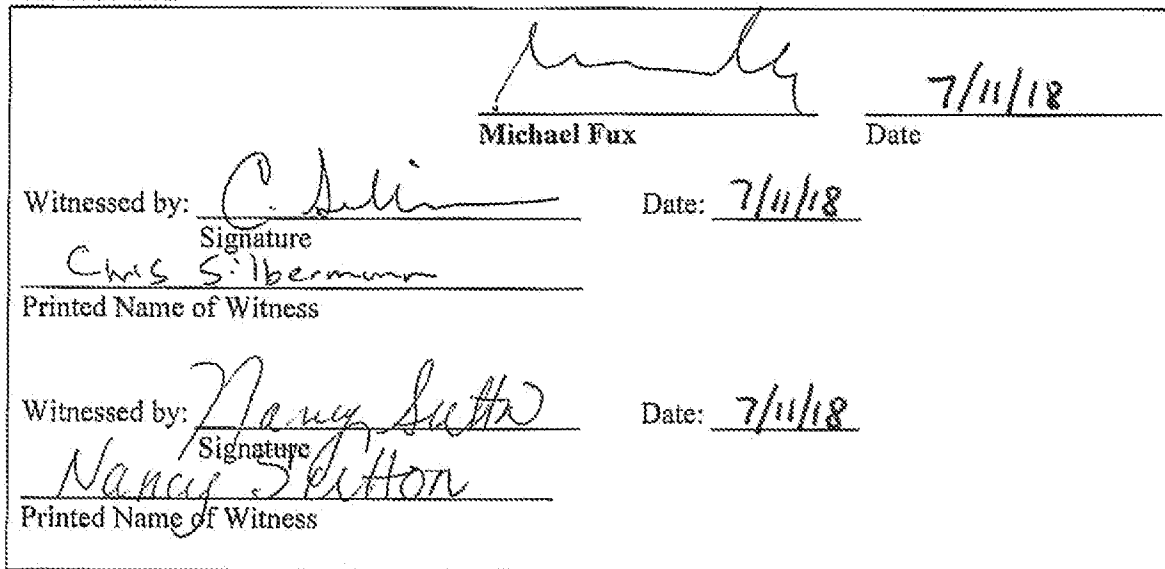 7/11/18
Michael Fux Date
Witnessed by: C. Date: 7/11/18
Signature
Chris Silbermann
Printed Name of Witness
Witnessed by: Nancy Sutton Date: 7/11/18
Signature
Nancy Sutton
Printed Name of Witness